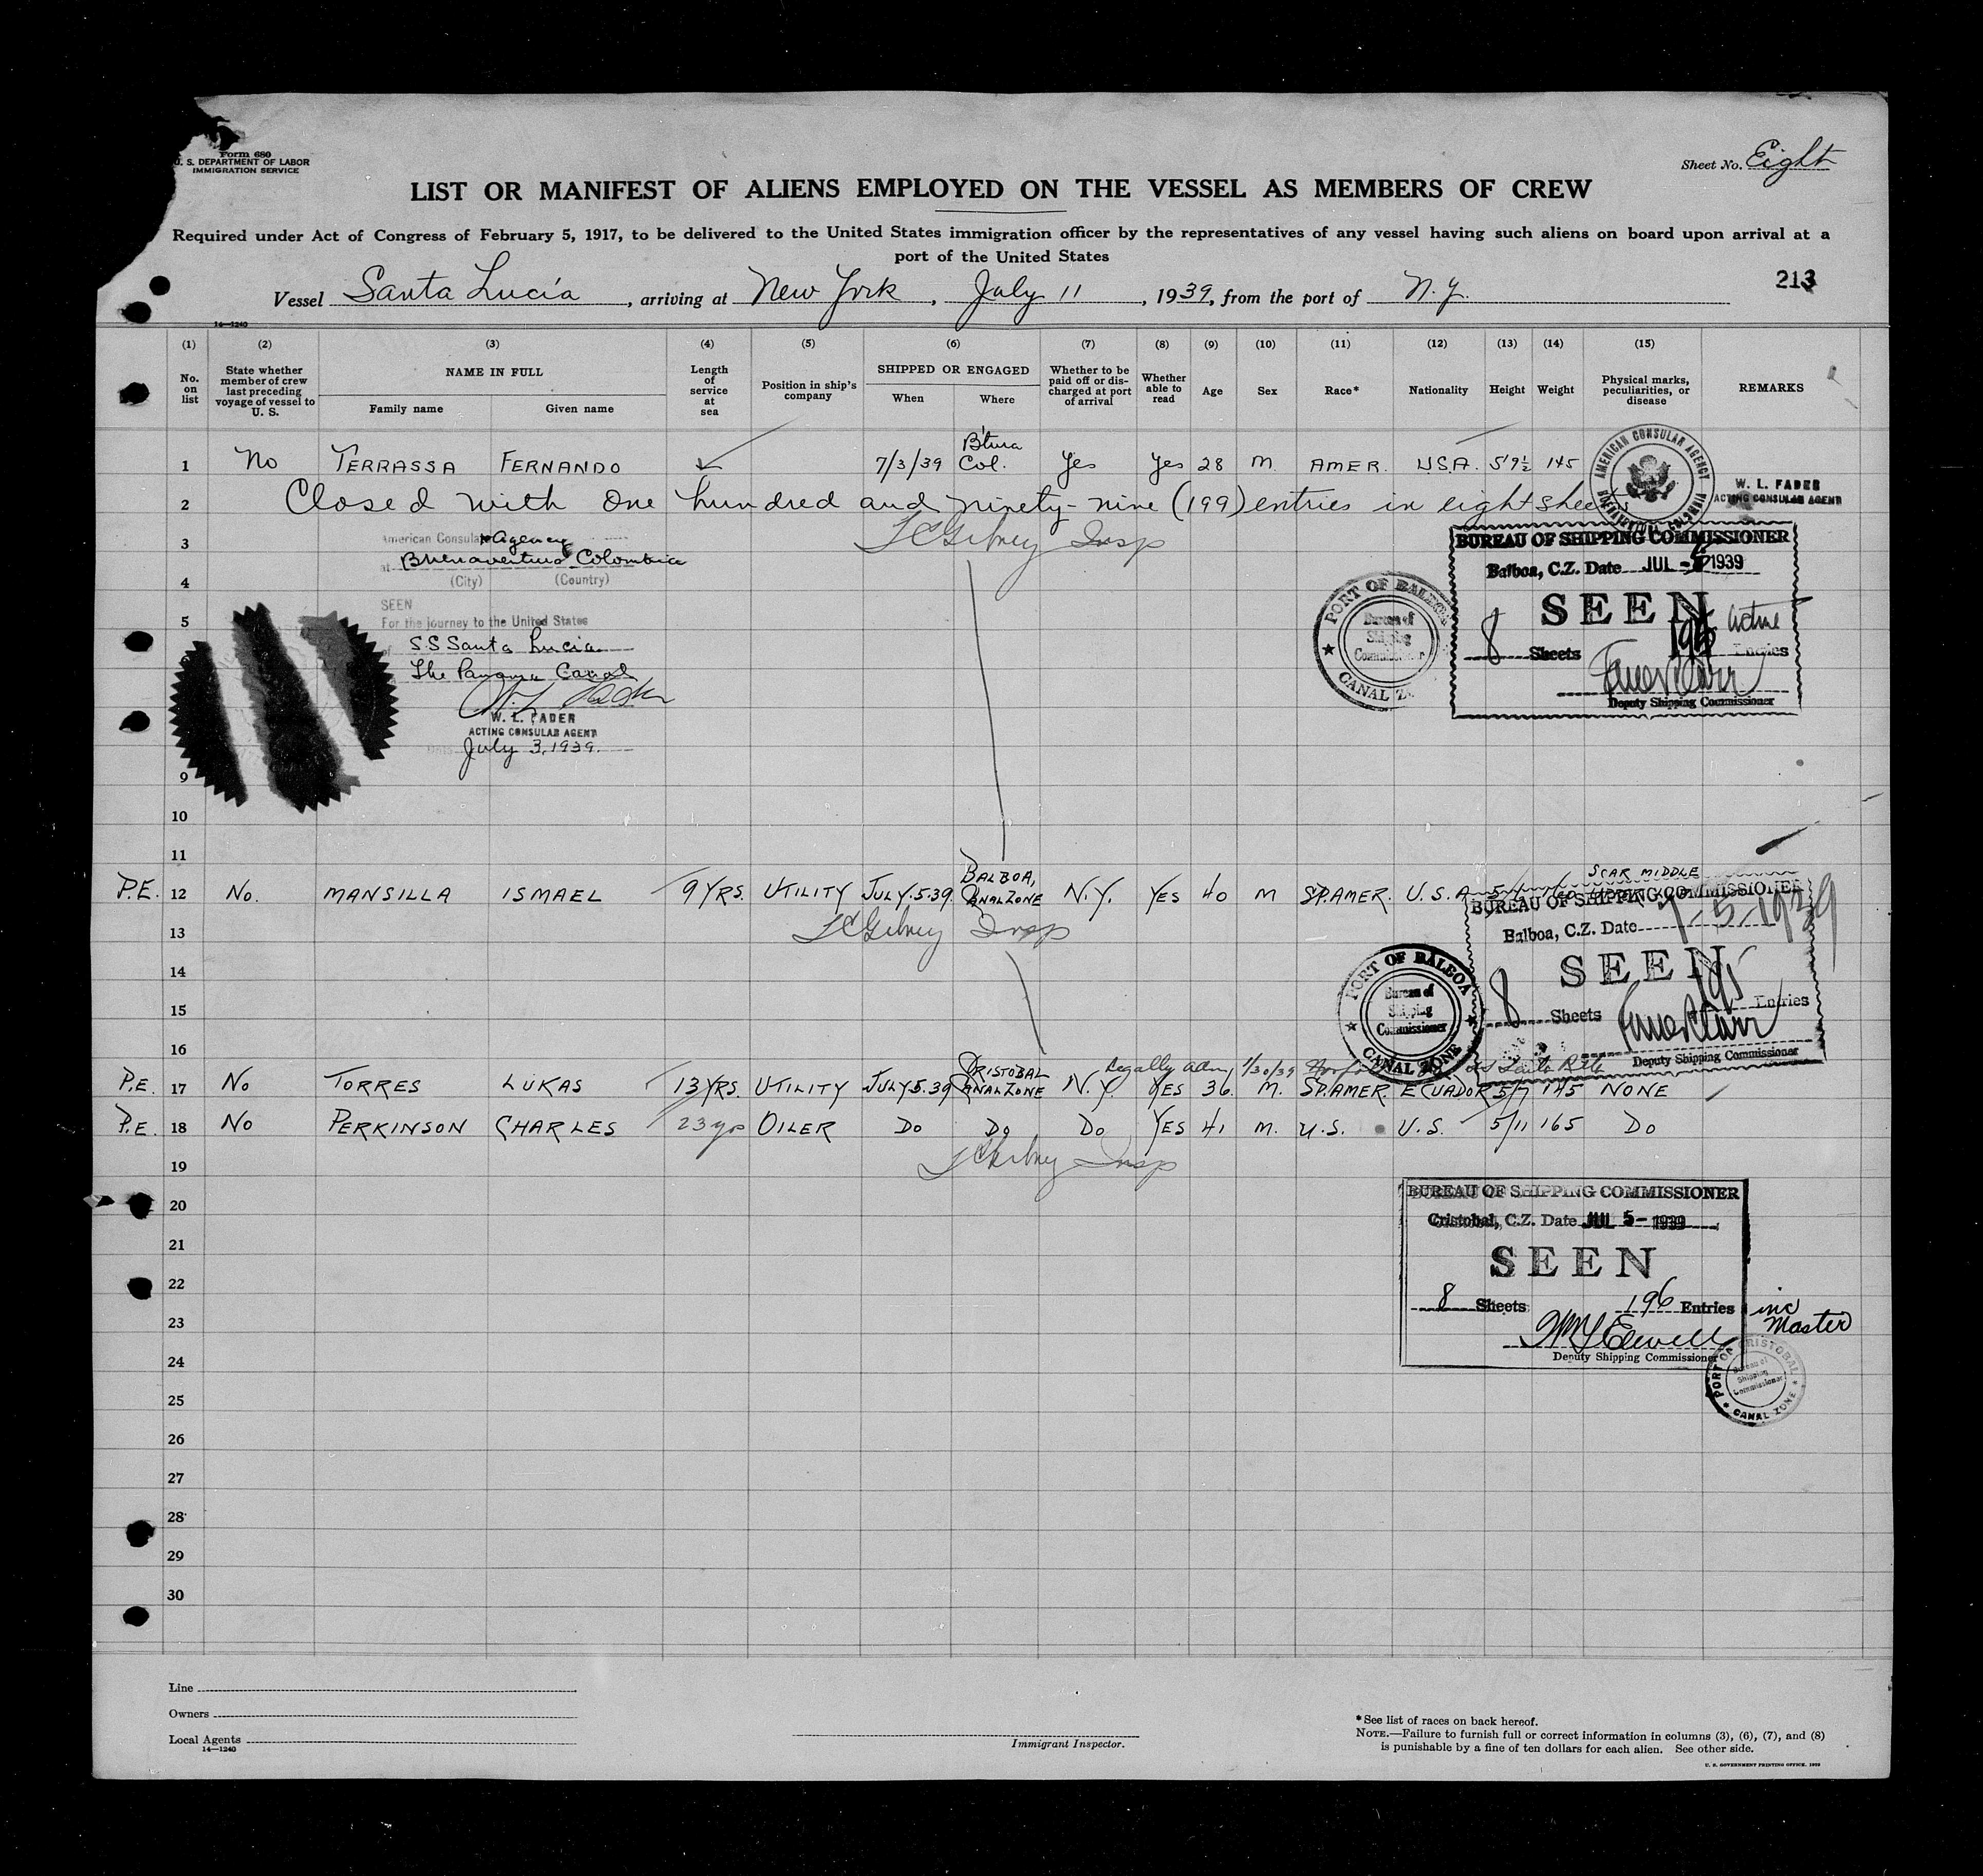 Form 680
U. S. DEPARTMENT OF LABOR
IMMIGRATION SERVICE
Sheet No. Eight
LIST OR MANIFEST OF ALIENS EMPLOYED ON THE VESSEL AS MEMBERS OF CREW
Required under Act of Congress of February 5, 1917, to be delivered to the United States immigration officer by the representatives of any vessel having such aliens on board upon arrival at a
port of the United States
213
Vessel Santa Lucia, arriving at New York, July 11, 1939, from the port of N.Y.
14—1240
(1) (2) (3) (4) (5) (6) (7) (8) (9) (10) (11) (12) (13) (14) (15)
No. on list
State whether member of crew last preceding voyage of vessel to U. S.
NAME IN FULL
Family name Given name
Length of service at sea
Position in ship's company
SHIPPED OR ENGAGED
When Where
Whether to be paid off or discharged at port of arrival
Whether able to read
Age
Sex
Race*
Nationality
Height
Weight
Physical marks, peculiarities, or disease
REMARKS
1 No TERRASSA FERNANDO 7/3/39 B'tura Col. Yes Yes 28 M. AMER. USA. 5'9½ 145
AMERICAN CONSULAR AGENCY
W. L. FADER
ACTING CONSULAR AGENT
2 Closed with one hundred and ninety-nine (199) entries in eight sheets
3
American Consular Agency
at Buenaventura Colombia
(City) (Country)
4
SEEN
For the journey to the United States
5
S.S Santa Lucia
The Panama Canal
W. L. FADER
ACTING CONSULAR AGENT
July 3, 1939.
BUREAU OF SHIPPING COMMISSIONER
Balboa, C.Z. Date JUL 1939
SEEN
8 Sheets Entries
Deputy Shipping Commissioner
PORT OF BALBOA
Bureau of
Shipping
Commissioner
CANAL Z
9
10
11
P.E. 12 No. MANSILLA ISMAEL 9 YRS. UTILITY JULY.5.39. BALBOA, CANAL ZONE N.Y. YES 40 M SP.AMER. U.S.A. SCAR MIDDLE
13
BUREAU OF SHIPPING COMMISSIONER
Balboa, C.Z. Date 7-5-1939
SEEN
8 Sheets 195 Entries
Deputy Shipping Commissioner
PORT OF BALBOA
Bureau of
Shipping
Commissioner
CANAL ZONE
14
15
16
Legally adm 1/30/39
P.E. 17 No TORRES LUKAS 13 YRS. UTILITY JULY.5.39 CRISTOBAL CANAL ZONE N.Y. YES 36 M. SP.AMER. ECUADOR 5/7 145 NONE
P.E. 18 No PERKINSON CHARLES 23 yrs OILER DO DO DO YES 41 M. U.S. U.S. 5/11 165 DO
19
20
21
22
23
24
25
26
27
28
29
30
BUREAU OF SHIPPING COMMISSIONER
Cristobal, C.Z. Date JUL 5- 1939
SEEN
8 Sheets 196 Entries inc Master
Deputy Shipping Commissioner
PORT OF CRISTOBAL
Bureau of
Shipping
Commissioner
CANAL ZONE
Line
Owners
Local Agents
14—1240
Immigrant Inspector.
*See list of races on back hereof.
NOTE.—Failure to furnish full or correct information in columns (3), (6), (7), and (8)
is punishable by a fine of ten dollars for each alien. See other side.
U. S. GOVERNMENT PRINTING OFFICE.